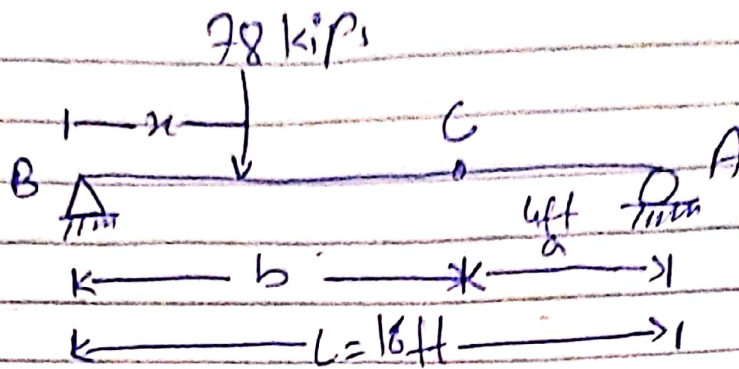 78 kips
x C
B A
4ft
b a
L = 18ft